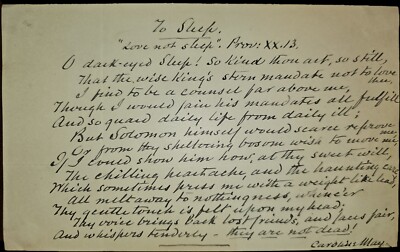 To Sleep.
"Love not sleep". Prov: XX.13.
O dark-eyed Sleep! So kind thou art, so still,
That the wise King's stern mandate not to love thee,
I find to be a counsel far above me,
Though I would fain his mandates all fulfill
And so guard daily life from daily ill;
But Solomon himself would scarce reprove me,
Or from thy sheltering bosom wish to move me,
If I could show him how, at thy sweet will,
The chilling heartache, and the haunting care
Which sometimes press me with a weight like lead,
All melt away to nothingness, whene'er
Thy gentle touch is felt upon my head;
Thy voice brings back lost friends, and faces fair,
And whispers tenderly – they are not dead!
Caroline May.